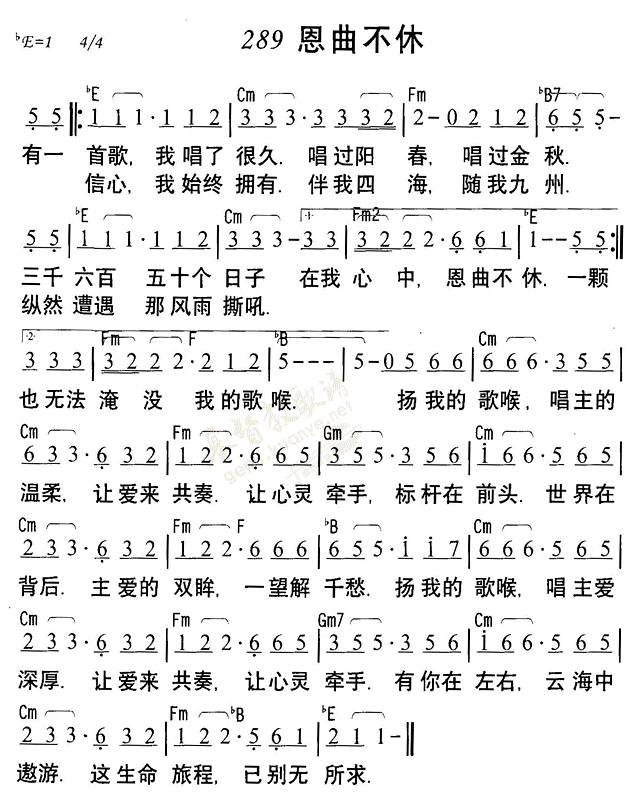 ♭E=1 4/4 289 恩曲不休
♭E Cm Fm ♭B7
5 5 ‖: 1 1 1· 1 1 2 | 3 3 3· 3 3 3 2 | 2 - 0 2 1 2 | 6 5 5 -
有一 首歌, 我唱了很久. 唱过阳 春, 唱过金秋.
信心, 我始终拥有. 伴我四 海, 随我九州.
♭E Cm 1. Fm2 ♭E
5 5 | 1 1 1· 1 2 2 | 3 3 3 - 3 3 | 3 2 2 2· 6 6 1 | 1 - - 5 5 :‖
三千 六百 五十个 日子 在我 心 中, 恩曲不休. 一颗
纵然 遭遇 那风雨 撕吼.
2. Fm F ♭B Cm
3 3 3 | 3 2 2 2· 2 1 2 | 5 - - - | 5 - 0 5 6 6 | 6 6 6· 5 3 5 |
也无法 淹 没 我的歌 喉. 扬我的 歌喉, 唱主的
Cm Fm Gm Cm
2 3 3· 6 3 2 | 1 2 2· 6 6 5 | 3 5 5· 3 5 6 | i 6 6· 5 6 5 |
温柔, 让爱来 共奏. 让心灵 牵手, 标杆在 前头. 世界在
Cm Fm F ♭B Cm
2 3 3· 6 3 2 | 1 2 2· 6 6 6 | 6 5 5· i i 7 | 6 6 6· 5 3 5 |
背后. 主爱的 双眸, 一望解 千愁. 扬我的 歌喉, 唱主爱
Cm Fm Gm7 Cm
2 3 3· 6 3 2 | 1 2 2· 6 6 5 | 3 5 5· 3 5 6 | i 6 6· 5 6 5 |
深厚. 让爱来 共奏, 让心灵 牵手. 有你在 左右, 云海中
Cm Fm ♭B ♭E
2 3 3· 6 3 2 | 1 2 2· 5 6 1 | 1 - - - ‖
遨游. 这生命 旅程, 已别无 所求.